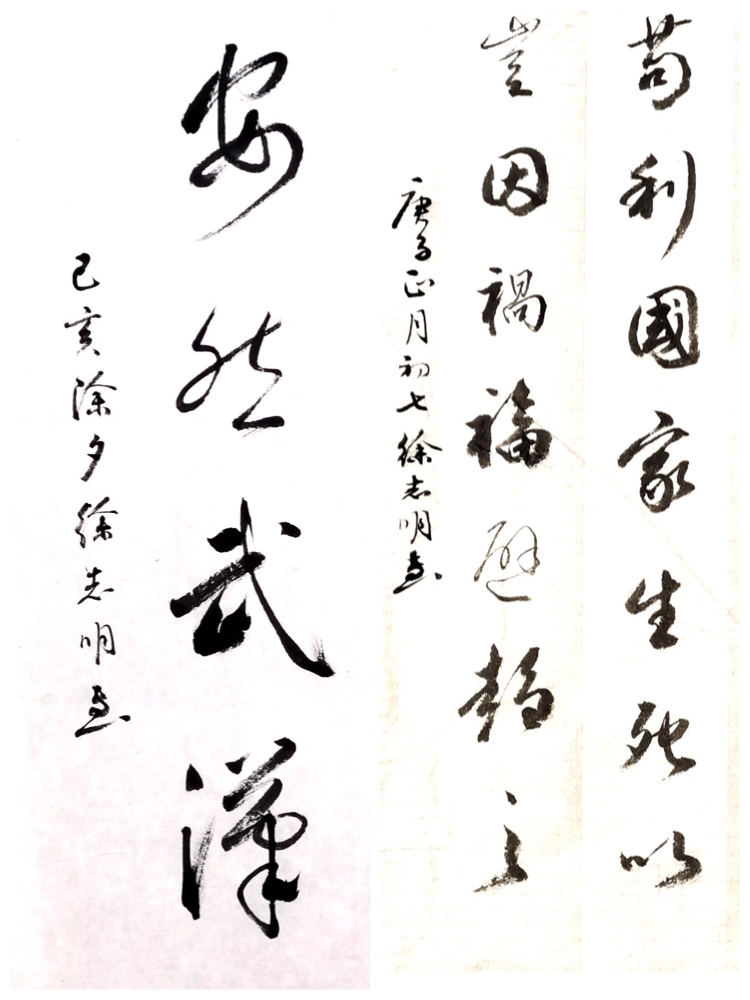 苟利國家生死以
豈因禍福避趨之
庚子正月初七徐志明書
安然武漢
己亥除夕徐志明書